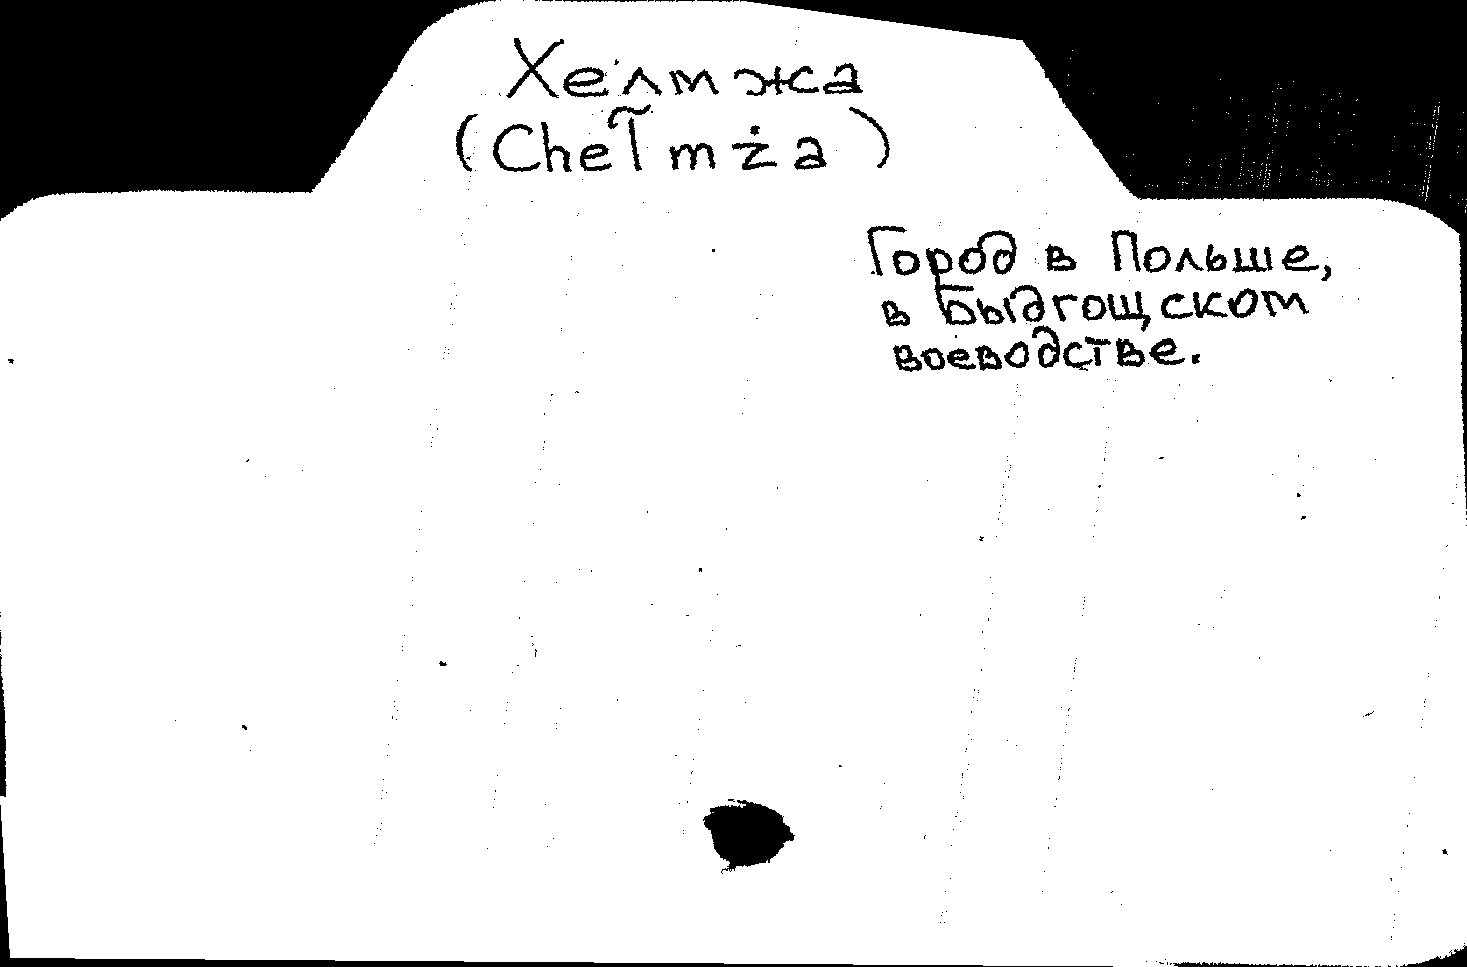 Хелмжа
(Chełmża)
Город в Польше,
в Быдгощском
воеводстве.